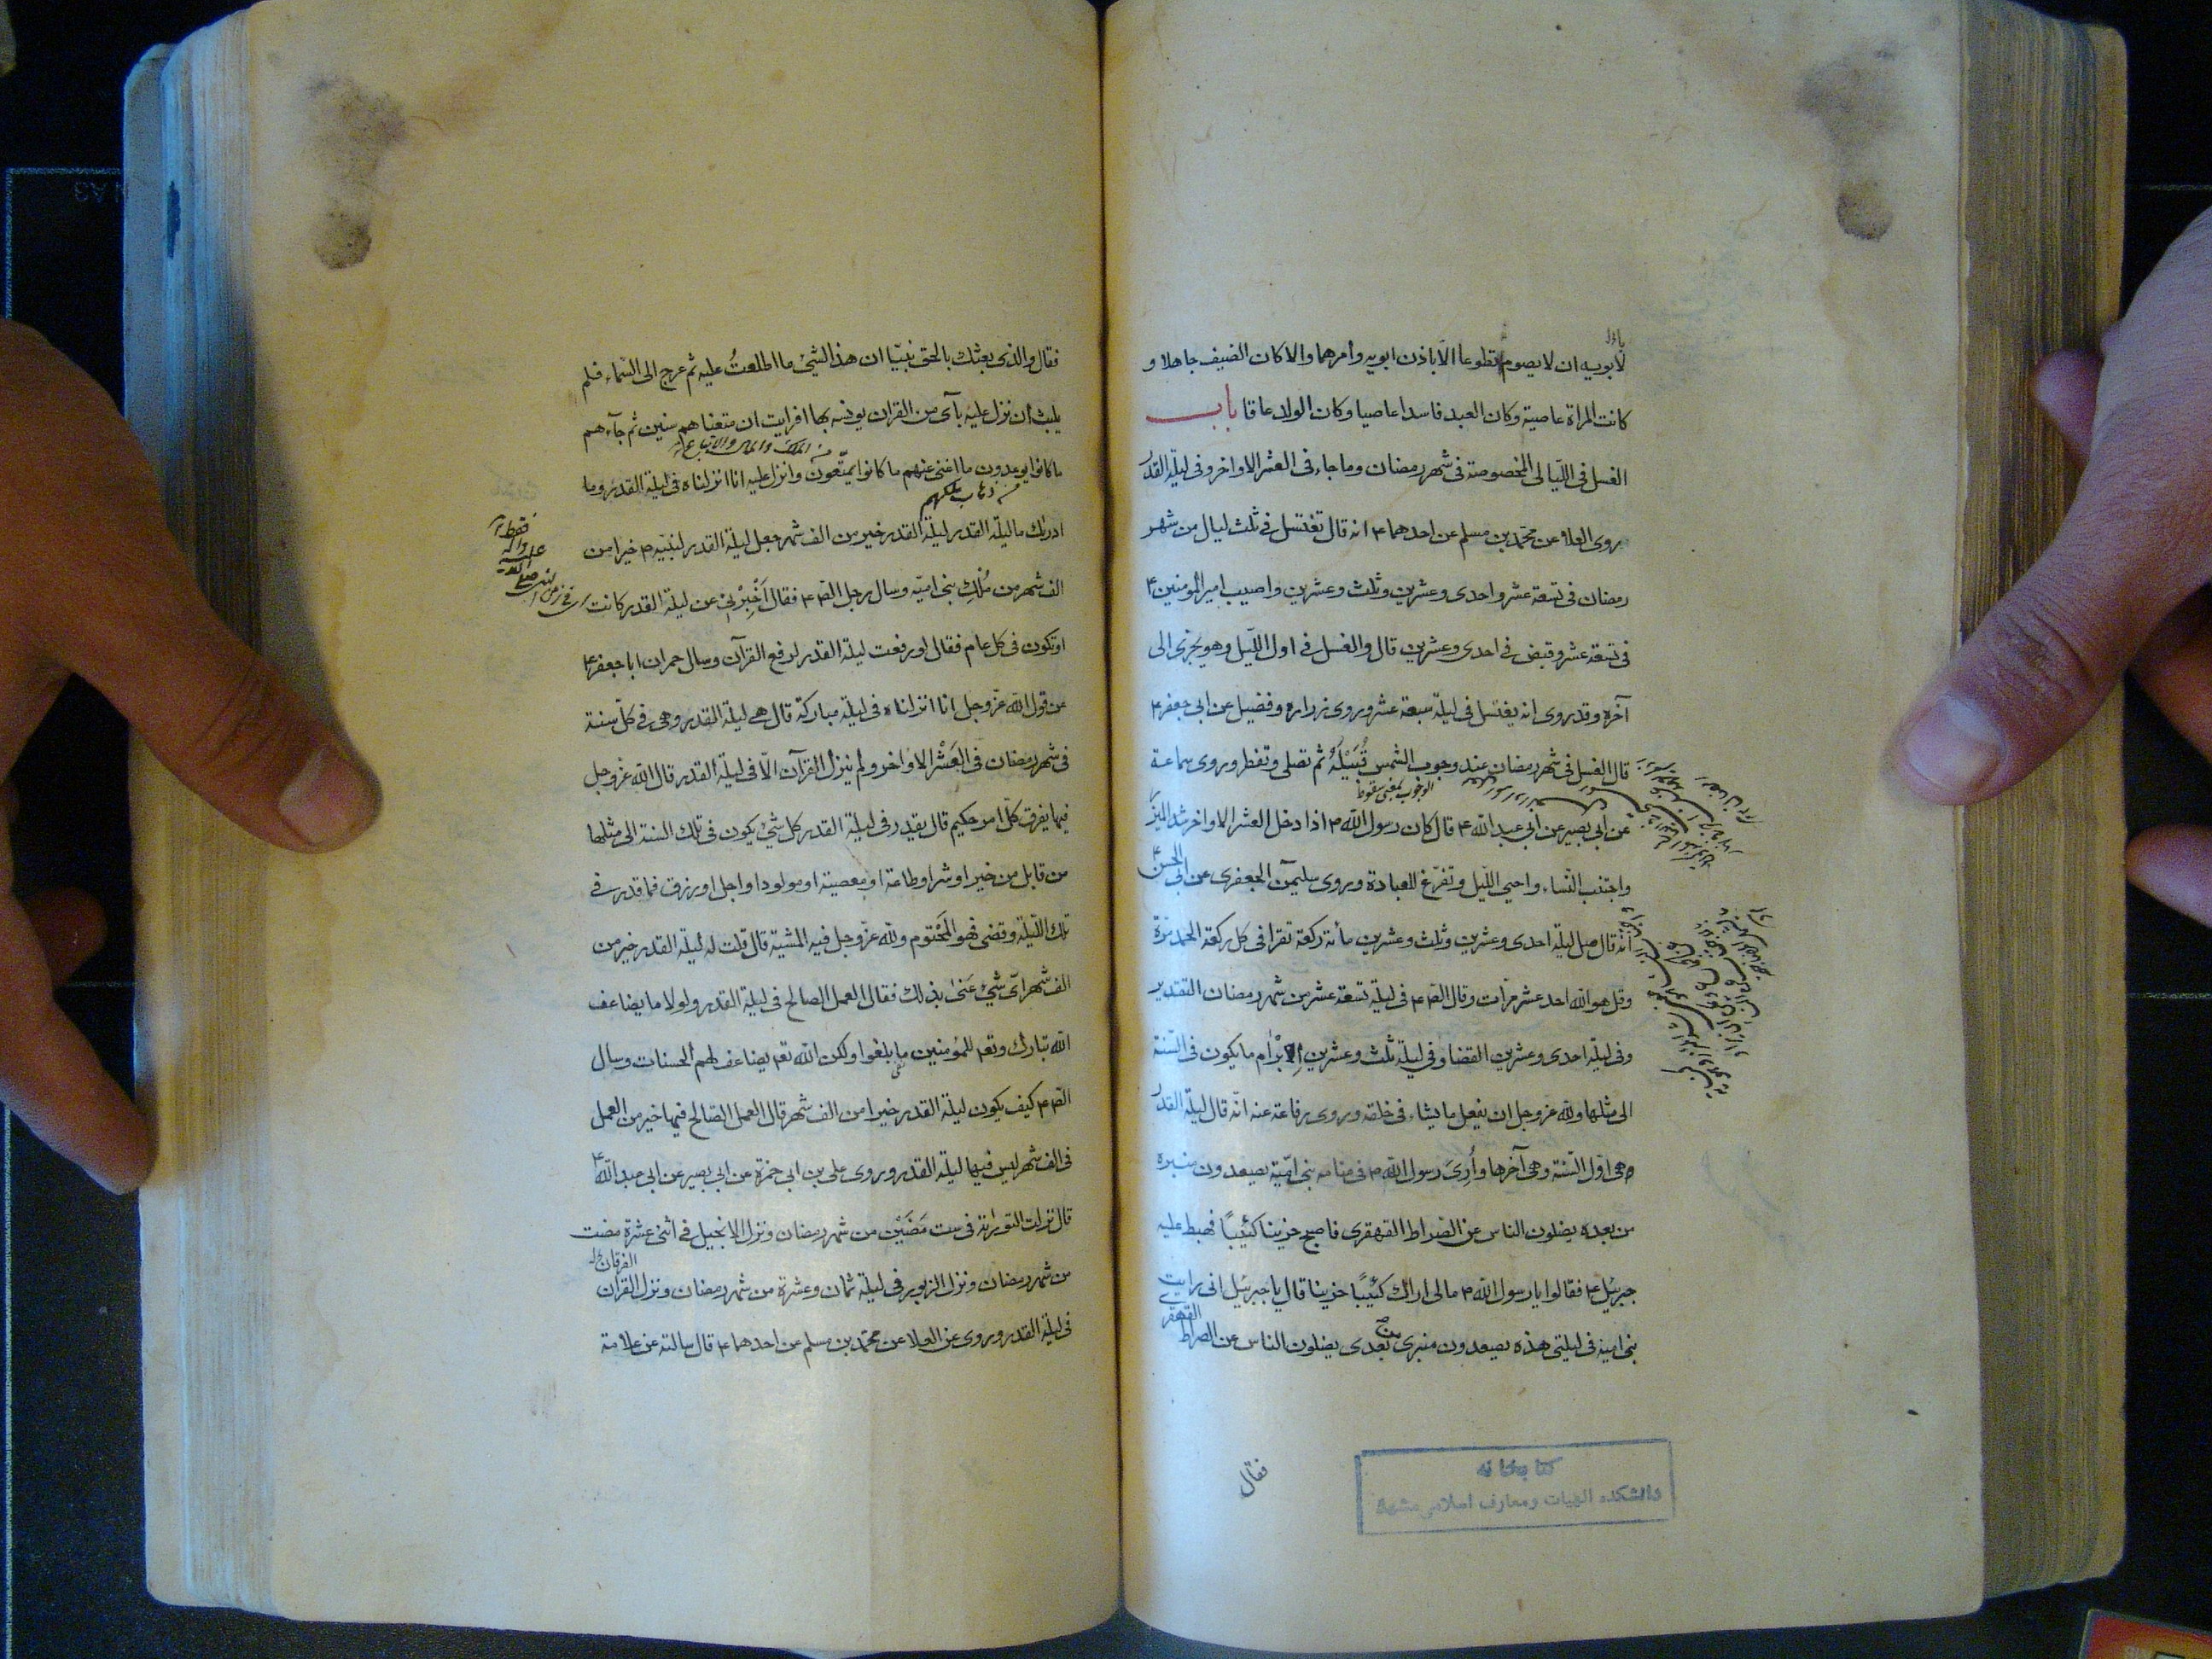 لابويه ان لا يصوم تطوعا الّا باذن ابويه وأمرهما والا كان الضيف جاهلا و
كانت المراة عاصية وكان العبد فاسدا عاصيا وكان الولد عاقا باب
الغسل فى اللّيالى المخصوصة فى شهر رمضان وما جاء فى العشر الاواخر وفى ليلة القدر
روى العلا عن محمّد بن مسلم عن احدهما ۴ انه قال تغتسل فى ثلث ليال من شهر
رمضان فى تسعة عشر واحدى وعشرين وثلث وعشرين واصيب امير المؤمنين ۴
فى تسعة عشر وقبض فى احدى وعشرين قال والغسل فى اول اللّيل وهو يجزى الى
آخره وقد روى انه يغتسل فى ليلة سبعة عشر وروى زراره وفضيل عن ابى جعفر ۴
قال الغسل فى شهر رمضان عند وجوب الشمس قُبَيْلَهُ ثم تصلى وتفطر وروى سماعة
الوجوب بمعنى سقوط
عن ابى بصير عن ابى عبد الله ۴ قال كان رسول الله ص اذا دخل العشر الاواخر شد الميزر
واجتنب النّساء واحيى اللّيل وتفرّغ للعبادة وروى سليمن الجعفرى عن ابى الحسن ۴
انّه قال صل ليلة احدى وعشرين وثلث وعشرين مأئة ركعة تقرا فى كل ركعة الحمد مرّة
وقل هو الله احد عشر مرّات وقال الص ۴ فى ليلة تسعة عشر من شهر رمضان التقدير
وفى ليلة احدى وعشرين القضا وفى ليلة ثلث وعشرين اِلابْرام ما يكون فى السّنة
الى مثلها ولله عز وجل ان يفعل ما يشاء فى خلقه وروى رفاعة عنه انّه قال ليلة القدر
هى اوّل السّنة وهى آخرها وأُرِىَ رسول الله ص فى منامه بنى اميّة يصعدون منبره
من بعده يضلون الناس عن الصّراط القهقرى فاصبح حزينا كئيبًا فهبط عليه
جبرئيل ۴ فقالوا يا رسول الله ص مالى اراك كئيبًا حزينا قال يا جبرئيل انى رايت
بنى امية فى ليلتى هذه يصعدون منبرى من بعدى يضلون الناس عن الصراط القهقرى
فقال
كتابخانه
دانشكده الهيات ومعارف اسلامى مشهد
فقال والذى بعثك بالحق نبيّا ان هذا الشئ ما اطلعتُ عليه ثم عرج الى السّماء فلم
يلبث ان نزل عليه بآى من القران يونسه بها افرايت ان متعناهم سنين ثم جآءهم
ما كانوا يوعدون ما اغنى عنهم ما كانوا يمتّعون وانزل عليه انا انزلناه فى ليلة القدر وما
ادريك ما ليلة القدر ليلة القدر خير من الف شهر جعل ليلة القدر لنبيّه ص خيرا من
الف شهر من مُلكِ بنى اميّة وسال رجل الص ۴ فقال أَخْبِرْنى عن ليلة القدر كانت
او تكون فى كل عام فقال لو رفعت ليلة القدر لرفع القرآن وسال حمران ابا جعفر ۴
عن قول الله عزّ وجل انا انزلناه فى ليلة مباركة قال هى ليلة القدر وهى فى كلّ سنة
فى شهر رمضان فى العَشْر الاواخر ولم ينزل القرآن الّا فى ليلة القدر قال الله عزّ وجل
فيها يفرق كلّ امر حكيم قال يقدر فى ليلة القدر كل شئ يكون فى تلك السنة الى مثلها
من قابل من خير او شر او طاعة او معصية او مولود او اجل او رزق فما قدر فى
تلك اللّيلة وقضى فهو المَحْتوم ولله عزّ وجل فيه المشية قال قلت له ليلة القدر خير من
الف شهر اىّ شئ عَنىٰ بذلك فقال العمل الصالح فى ليلة القدر ولولا ما يضاعف
الله تبارك وتعه للمؤمنين ما بلغوا ولكن الله تعه يضاعف لهم الحسنات وسال
الص ۴ كيف يكون ليلة القدر خيرا من الف شهر قال العمل الصّالح فيها خير من العمل
فى الف شهر ليس فيها ليلة القدر وروى على بن ابى حمزة عن ابى بصير عن ابى عبد الله ۴
قال نزلت التورية فى ست مَضَيْن من شهر رمضان ونزل الانجيل فى اثنى عشرة مضت
الفرقان
من شهر رمضان ونزل الزبور فى ليلة ثمان وعشرة من شهر رمضان ونزل القران
فى ليلة القدر وروى عن العلا عن محمّد بن مسلم عن احدهما ۴ قال سالته عن علامة